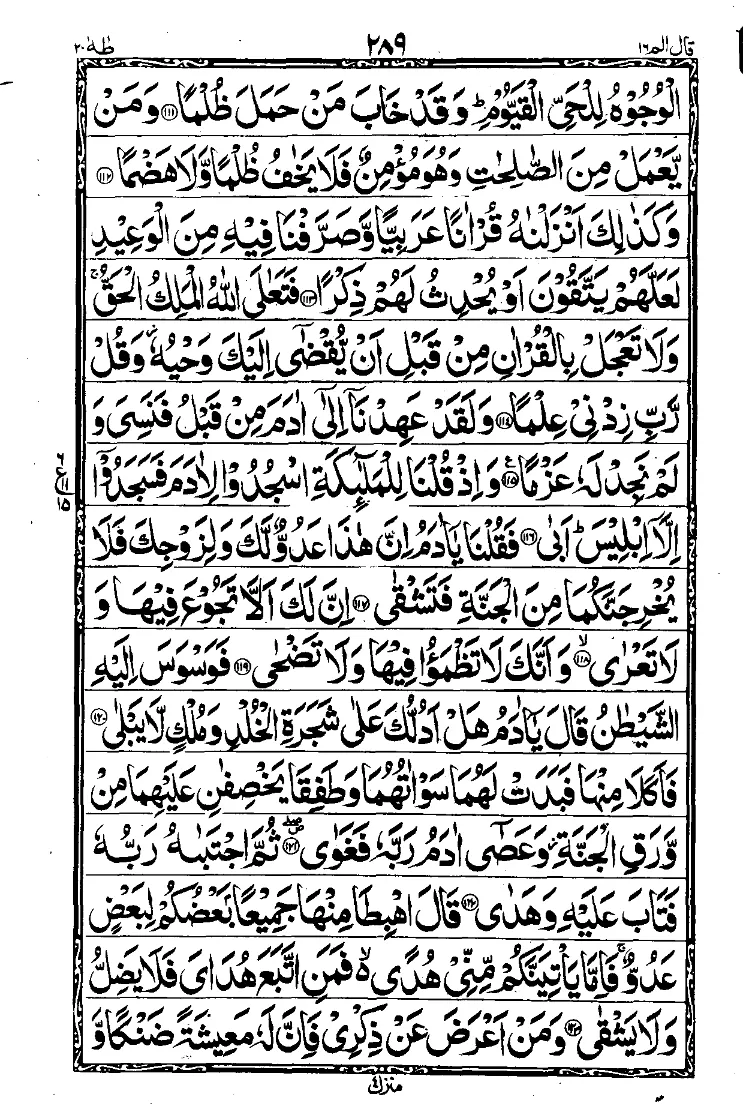 قال الم ١٦ ٢٨٩ طٰهٰ ٢٠
الْوُجُوْهُ لِلْحَیِّ الْقَیُّوْمِ ؕ وَ قَدْ خَابَ مَنْ حَمَلَ ظُلْمًا ﴿۱۱۱﴾ وَ مَنْ
یَّعْمَلْ مِنَ الصّٰلِحٰتِ وَ هُوَ مُؤْمِنٌ فَلَا یَخٰفُ ظُلْمًا وَّ لَا هَضْمًا ﴿۱۱۲﴾
وَ كَذٰلِكَ اَنْزَلْنٰهُ قُرْاٰنًا عَرَبِیًّا وَّ صَرَّفْنَا فِیْهِ مِنَ الْوَعِیْدِ
لَعَلَّهُمْ یَتَّقُوْنَ اَوْ یُحْدِثُ لَهُمْ ذِكْرًا ﴿۱۱۳﴾ فَتَعٰلَی اللّٰهُ الْمَلِكُ الْحَقُّ ۚ
وَ لَا تَعْجَلْ بِالْقُرْاٰنِ مِنْ قَبْلِ اَنْ یُّقْضٰۤی اِلَیْكَ وَحْیُهٗ ؗ وَ قُلْ
رَّبِّ زِدْنِیْ عِلْمًا ﴿۱۱۴﴾ وَ لَقَدْ عَهِدْنَاۤ اِلٰۤی اٰدَمَ مِنْ قَبْلُ فَنَسِیَ وَ
لَمْ نَجِدْ لَهٗ عَزْمًا ﴿۱۱۵﴾ وَ اِذْ قُلْنَا لِلْمَلٰٓىِٕكَةِ اسْجُدُوْا لِاٰدَمَ فَسَجَدُوْۤا
٦ ع ١١ ١٥
اِلَّاۤ اِبْلِیْسَ ؕ اَبٰی ﴿۱۱۶﴾ فَقُلْنَا یٰۤاٰدَمُ اِنَّ هٰذَا عَدُوٌّ لَّكَ وَ لِزَوْجِكَ فَلَا
یُخْرِجَنَّكُمَا مِنَ الْجَنَّةِ فَتَشْقٰی ﴿۱۱۷﴾ اِنَّ لَكَ اَلَّا تَجُوْعَ فِیْهَا وَ
لَا تَعْرٰی ۙ﴿۱۱۸﴾ وَ اَنَّكَ لَا تَظْمَؤُا فِیْهَا وَ لَا تَضْحٰی ﴿۱۱۹﴾ فَوَسْوَسَ اِلَیْهِ
الشَّیْطٰنُ قَالَ یٰۤاٰدَمُ هَلْ اَدُلُّكَ عَلٰی شَجَرَةِ الْخُلْدِ وَ مُلْكٍ لَّا یَبْلٰی ﴿۱۲۰﴾
فَاَكَلَا مِنْهَا فَبَدَتْ لَهُمَا سَوْاٰتُهُمَا وَ طَفِقَا یَخْصِفٰنِ عَلَیْهِمَا مِنْ
وَّرَقِ الْجَنَّةِ ؗ وَ عَصٰۤی اٰدَمُ رَبَّهٗ فَغَوٰی ﴿۱۲۱﴾ ثُمَّ اجْتَبٰىهُ رَبُّهٗ
فَتَابَ عَلَیْهِ وَ هَدٰی ﴿۱۲۲﴾ قَالَ اهْبِطَا مِنْهَا جَمِیْعًۢا بَعْضُكُمْ لِبَعْضٍ
عَدُوٌّ ۚ فَاِمَّا یَاْتِیَنَّكُمْ مِّنِّیْ هُدًی ۙ۬ فَمَنِ اتَّبَعَ هُدَایَ فَلَا یَضِلُّ
وَ لَا یَشْقٰی ﴿۱۲۳﴾ وَ مَنْ اَعْرَضَ عَنْ ذِكْرِیْ فَاِنَّ لَهٗ مَعِیْشَةً ضَنْكًا وَّ